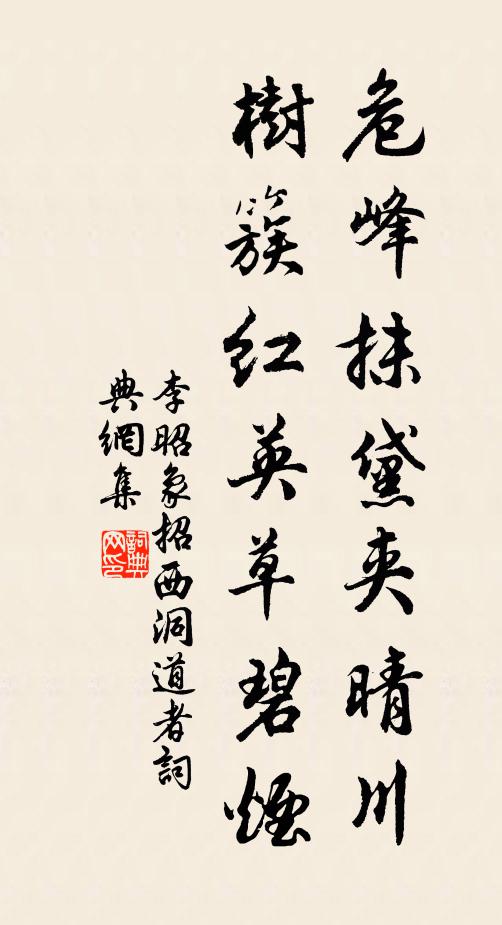 危峰抹黛夾晴川
樹簇红英草碧煙
李昭象招西洞道者詞
典網集
詞典
网印